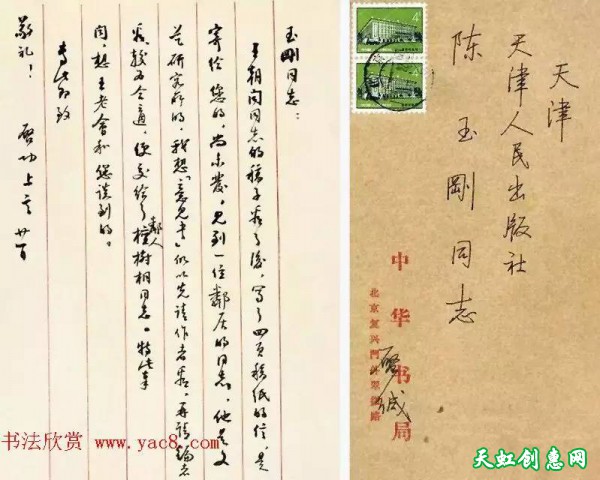 玉剛同志：
王朝闻同志的稿子看了後，写了四页稿纸的信，是
寄给您的，尚未發，見到一位鄰居的同志，他是文
艺研究所的，我想「意見书」似以先请作者看，再请编者
看，較为合適，便交给了樹相同志。特此奉
鄰人
闻，想王老会和您谈到的。
专此即致
敬礼！ 启功上
天津
天津人民出版社
陈玉剛同志
中华书局
北京复兴门外翠微路
缄
4
4
书法欣赏 www.yac8.com
天虹创惠网